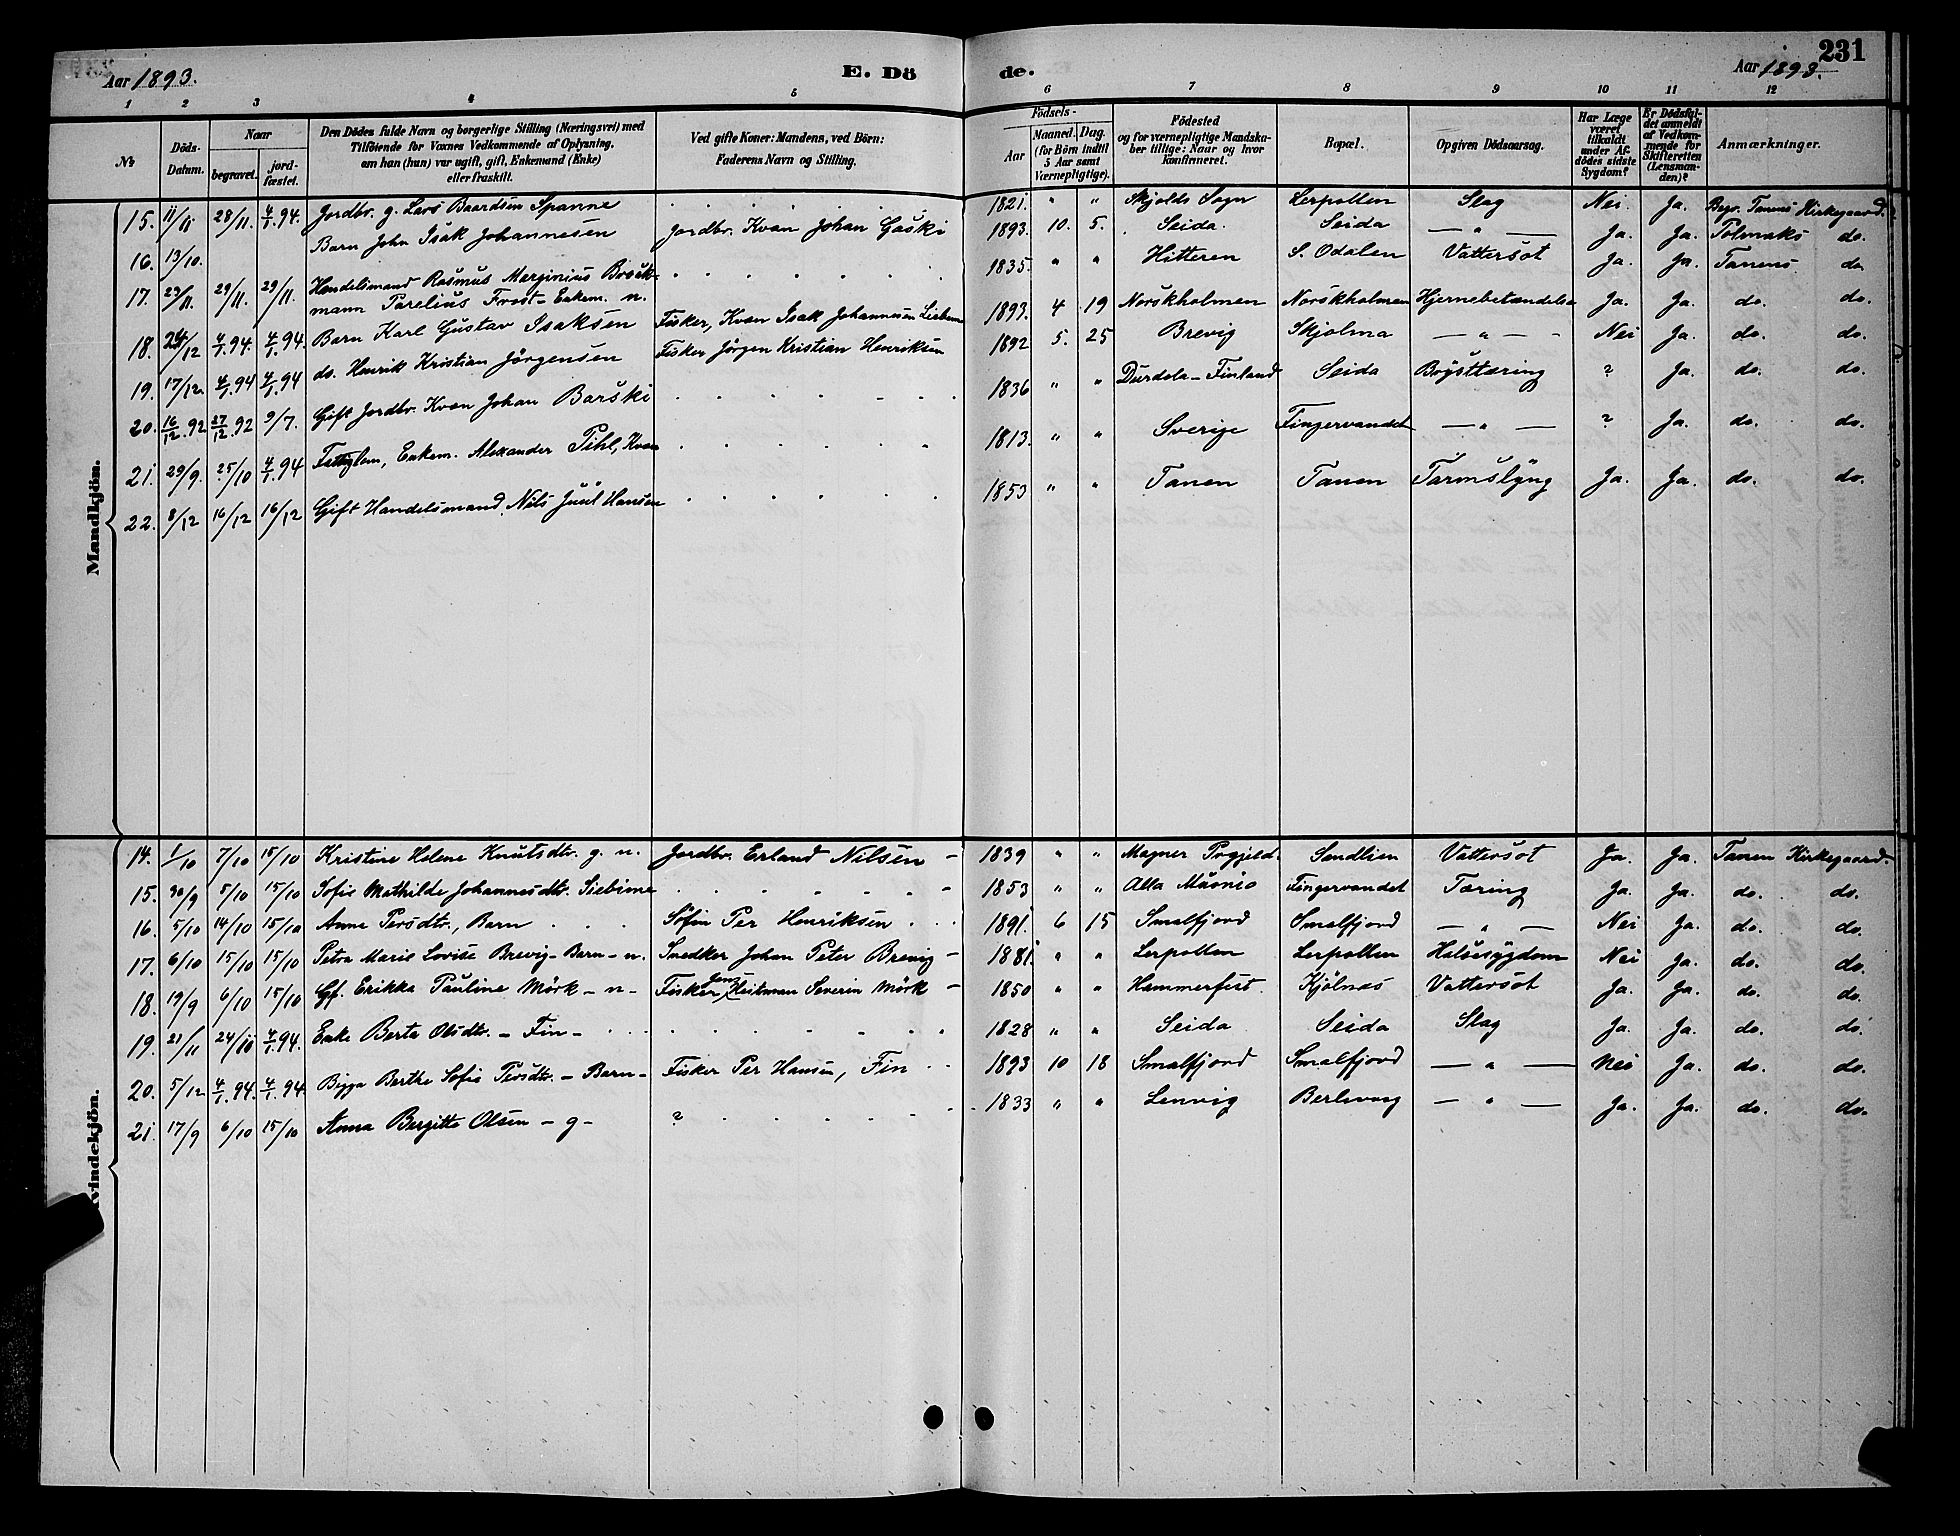 Aar 1893. E. Dö de. Aar 1893 231
1 2 3 4 5 6 7 8 9 10 11 12
№ Döds-Datum. Naar begravet. jord-fæstet. Den Dödes fulde Navn og borgerlige Stilling (Næringsvei) med Tilföiende for Voxnes Vedkommende af Oplysning, om han (hun) var ugift, gift, Enkemand (Enke) eller fraskilt. Ved gifte Koner: Mandens, ved Börn: Faderens Navn og Stilling. Födsels- Aar Maaned. Dag. (for Börn indtil 5 Aar samt Værnepligtige). Födested og for værnepligtige Mandskaber tillige: Naar og hvor Konfirmeret. Bopæl. Opgiven Dödsaarsag. Har Læge været tilkaldt under Afdödes sidste Sygdom? Er Dödsfaldet anmeldt af Vedkommende for Skifteretten (Lensmanden)? Anmærkninger.
Mandkjön.
15. 11/11 28/11. 4/1 94. Jordbr. g. Lars Baardsen Spanne 1821. " " Skjolds Sogn Lerpollen Slag Nei Ja. Begr. Tanens Kirkegaard.
16. 13/10. Barn John Isak Johannesen Jordbr. Kvæn Johan Gaski 1893. 10. 5. Seida. Seida — " — Ja. Ja. Polmaks do.
17. 23/11. 29/11. 29/11. Handelsmand Rasmus Marginius Brock-
mann Parelius Frost - Enkem. n. 1835. " " Hitteren S. Odalen Vattersot Ja. Ja. Tanens do
18. 24/12 4/1 94. 4/1 94. Barn Karl Gustav Isaksen Fisker, Kvæn Isak Johannesen 1893. 4 19 Norskholmen Norskholmen Hjernebetændelse Ja. Ja. do. do.
19. 17/12. 4/1 94 4/1 94 do. Henrik Kristian Jörgensen Fisker Jörgen Kristian Henriksen 1892 5. 25 Brevig Skjolma — " — Nei Ja. do. do.
20. 16/12. 92 27/12. 92 9/7. Gift Jordbr. Kvæn Johan Barski 1836 " " - Finland Seida Brysttæring ? Ja. do. do.
21. 29/9. 25/10 4/1 94 Fattiglem, Enkem. Alexander Pihl, Kvæn 1813. " " Sverige Fingervandet — " — ? Ja. do. do.
22. 8/12 16/12 16/12 Gift Handelsmand Nils Juul Hansen 1853 " " Tanen Tanen Tarmslyng Ja. Ja. do. do.
Kvindekjön.
14. 1/10 7/10 15/10 Kristine Helene Knutsdtr. g. n. Jordbr. Erland Nilsen 1839 " " Magner Prgjeld. Sandlien Vattersot Ja. Ja. Tanen Kirkegaard.
15. 30/9 5/10 15/10 Sofie Mathilde Johannesdtr. Siebime 1853 " " Alta Fingervandet Tæring Ja. Ja. do. do.
16. 5/10 14/10 15/10 Anne Persdtr., Barn Söfin Per Henriksen 1891. 6 15 Smalfjord Smalfjord — " — Nei Ja. do. do.
17. 6/10 15/10 15/10 Petra Marie Lovise Brevig - Barn - n. Snedker Johan Peter Brevig 1881. " " Lerpollen Lerpollen Halsesygdom Nei Ja. do. do.
18. 19/9 6/10 15/10 Gf. Erikka Pauline Mörk - n - Fisker Jens Heitman Severin Mörk 1850 " " Hammerfest. Kjölnæs Vattersot Ja. Ja. do. do.
19. 21/11 24/11 4/1 94. Enke Berta Olsdtr. - Fin - 1828 " " Seida Seida Slag Ja. Ja. do. do.
20. 5/12 4/1 94. 4/1 94. Bigga Berthe Sofie Persdtr. - Barn - Fisker Per Hansen, Fin 1893 10 18 Smalfjord Smalfjord — " — Nei Ja. do. do.
21. 17/9 6/10 15/10 Anna Bergitte Olsen - g - ? 1833 " " Lenvig Berlevaag — " — Ja. Ja. do. do.